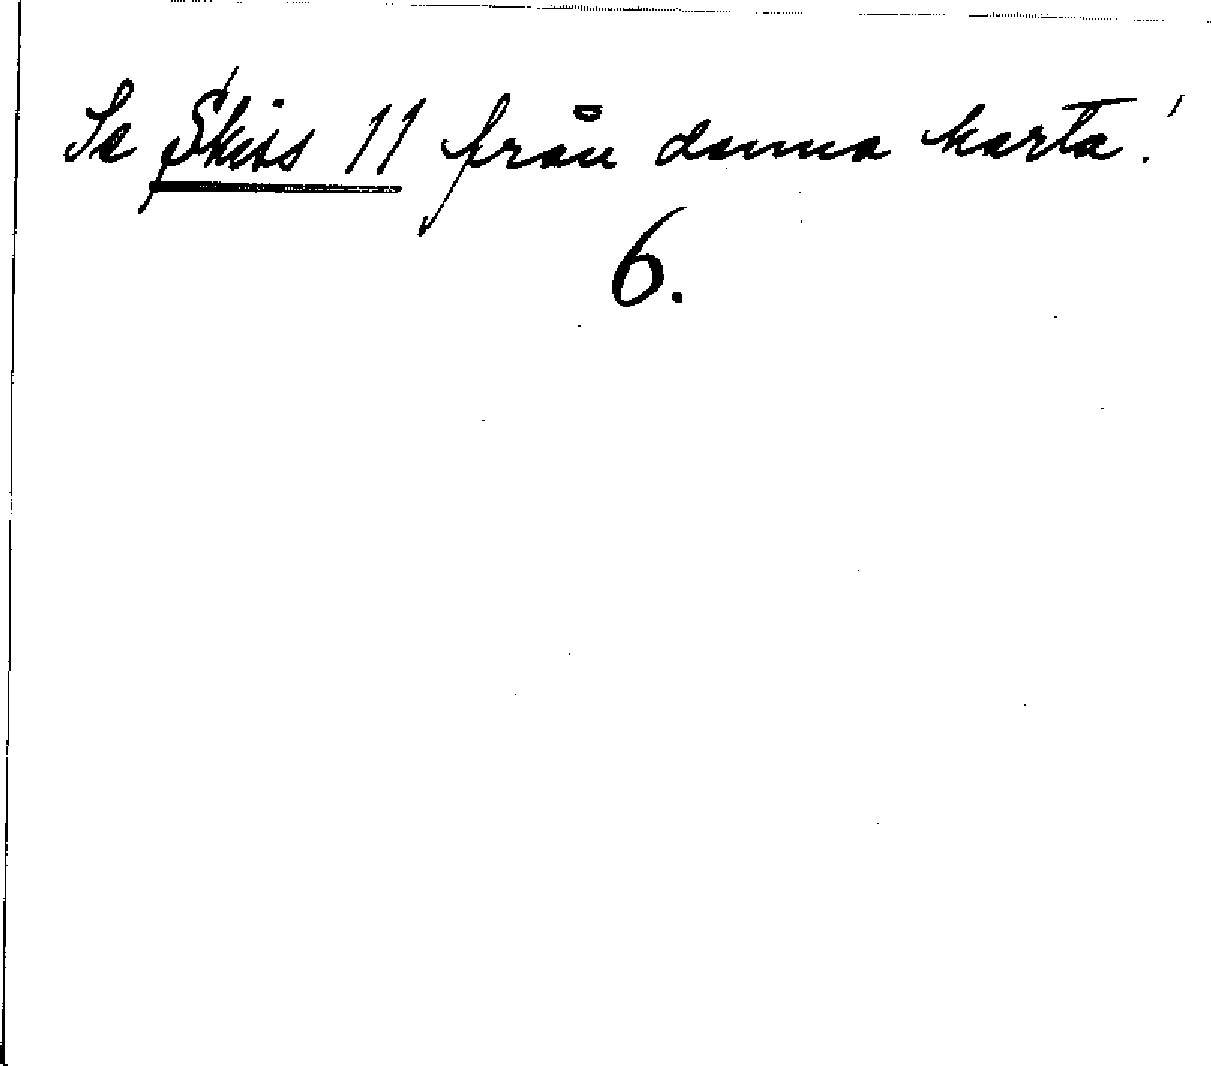 Se Skiss 11 från denna karta!
6.